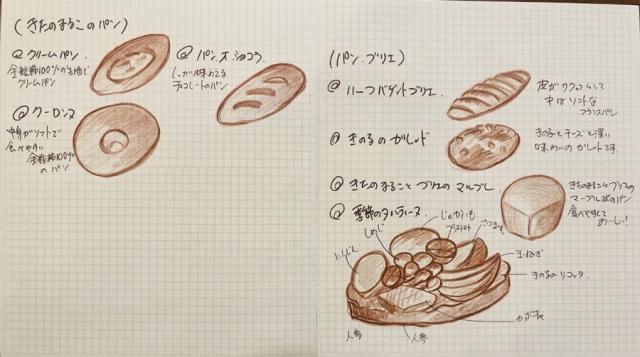 (きたのまるこのパン)
@ クリームパン
全粒粉100%の生地で
クリームパン
@ パン・オ・ショコラ
しっかり味わえる
チョコレートのパン
@ クーロンヌ
中身がソフトで
食べやすい
全粒粉100%
のパン
(パン・ブリエ)
@ ハーフバゲットブリエ
皮がカリッとして
中はソフトな
フランスパン
@ きのこのガレット
きのことチーズと深い
味わいのガレットです
@ きたのまること ブリエの マーブレ
きたのまることブリエの
マーブル状のパン
食べやすくて
おいしい!
@ 季節のタルティーヌ
じゃがいも
しめじ
プチトマト
さつまいも
にんじん
玉ねぎ
きのこのリコッタ
かぼちゃ
人参
人参